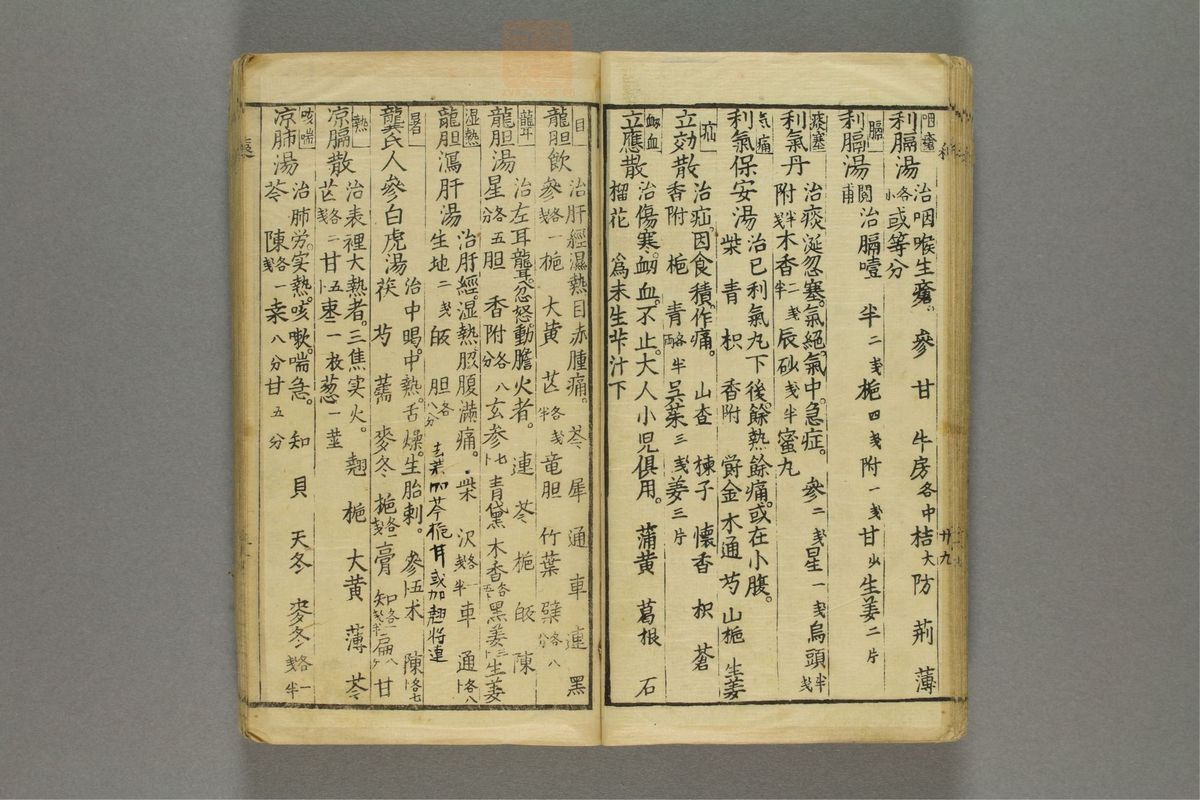 咽瘡
利膈湯
治咽喉生瘡。參 甘 牛房各中 桔大 防 荊 薄
各小 或等分
膈
利膈湯
閣甫 治膈噎 半二戔 梔四戔 附一戔 甘少 生姜二片
痰塞
利氣丹
治痰涎忽塞。氣絕。氣中。急症。 參二戔 星一戔 烏頭半戔
附半戔 木香二戔半 辰砂戔半 蜜丸
气痛
利氣保安湯
治已利氣丸下後。餘熱餘痛。或在小腹。
柴 青 枳 香附 欝金 木通 芍 山梔 生姜
疝
立効散
治疝。因食積。作痛。 山查 楝子 懷香 枳 蒼
香附 梔 青各半両 吳茱三戔 姜三片
衂血
立應散
治傷寒。衂血。不止。大人小児俱用。 蒲黄 葛根 石
榴花 為末生芐汁下
廿九
目
龍胆飲
治肝經濕熱目赤腫痛。 芩 犀 通 車 連 黑
參各一戔 梔 大黄 芑各戔半 竜胆 竹葉 蘗各八分
龍耳
龍胆湯
治左耳聾。忽怒動膽火者。 連 芩 梔 皈 陳
星各五分 胆 香附各八分 玄參七卜 青黛 木香各五 黑姜三卜 生姜
湿熱
龍胆瀉肝湯
治肝經。湿熱。腹滿痛。 柴 沢各一戔半 車 通各八卜
生地二戔 皈 胆各八分 去柴加芩梔甘或加翹将連
暑
龔氏人參白虎湯
治中暍。中熱。舌燥。生胎刺。 參五卜 朮 陳各七卜
茯 芍 薷 麥冬 梔各一戔 膏 知各一戔半 扁八ケ 甘
熱
凉膈散
治表裡大熱者。三焦实火。 翹 梔 大黄 薄 芩
芑各二戔 甘五卜 枣一枚 葱一莖
咳喘
凉肺湯
治肺労。实熱。咳嗽。喘急。 知 貝 天冬 麥冬各一戔半
芩 陳各一戔 桒八分 甘五分